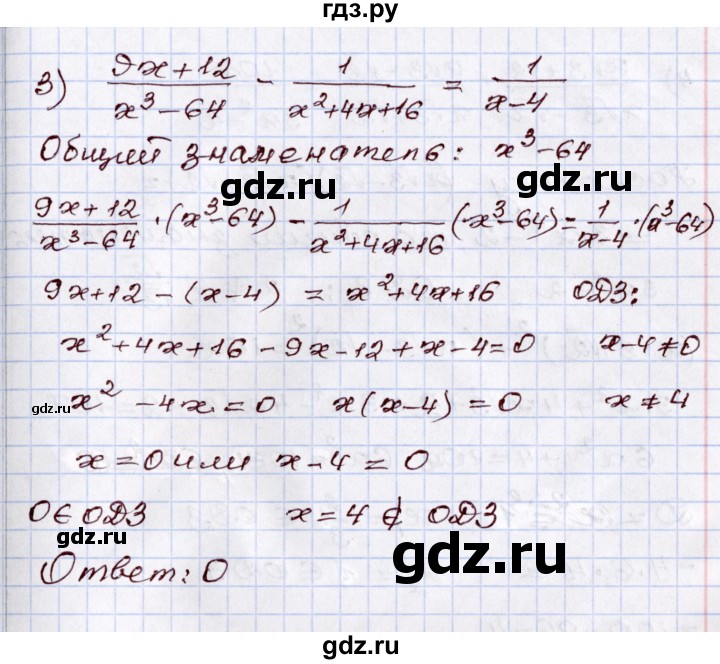 гдз.ру
3) (9x+12)/(x³-64) - 1/(x²+4x+16) = 1/(x-4)
Общий знаменатель: x³-64
gdz.ru
(9x+12)/(x³-64) · (x³-64) - 1/(x²+4x+16) (x³-64) = 1/(x-4) · (x³-64)
9x+12 - (x-4) = x²+4x+16 ОДЗ:
x²+4x+16 - 9x-12+x-4=0 x-4≠0
x² -4x = 0 x(x-4) = 0 x≠4
gdz.ru
x = 0 или x-4 = 0
0∈ОДЗ x=4 ∉ ОДЗ
gdz.ru
gdz.ru
Ответ: 0
gdz.ru